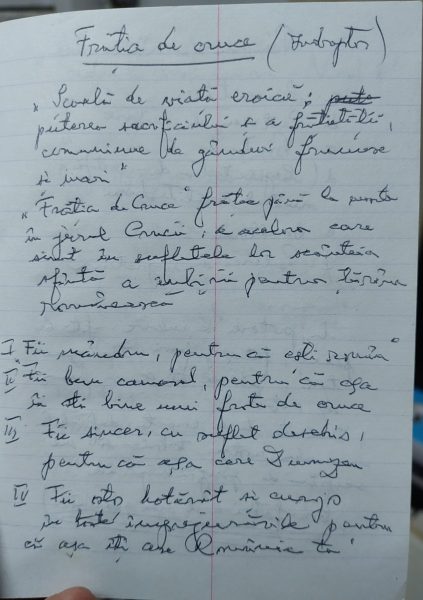 Frăția de cruce (Îndreptar)
„Școală de viață eroică; pute
puterea sacrificiului și a frățietății,
comuniune de gânduri frumoase
și mari"
„Frăția de Cruce" frăție până la moarte
în jurul Crucii, a acelora care
sunt în sufletele lor scânteia
sfântă a iubirii pentru țărâna
românească
I Fii mândru, pentru că ești român"
II Fii bun camarad, pentru că așa
îi stă bine unui frate de cruce
III Fii sincer, cu suflet deschis,
pentru că așa cere Dumnezeu
IV Fii hotărât și curajos
în toate împrejurările pentru
că așa îți cere România ta"